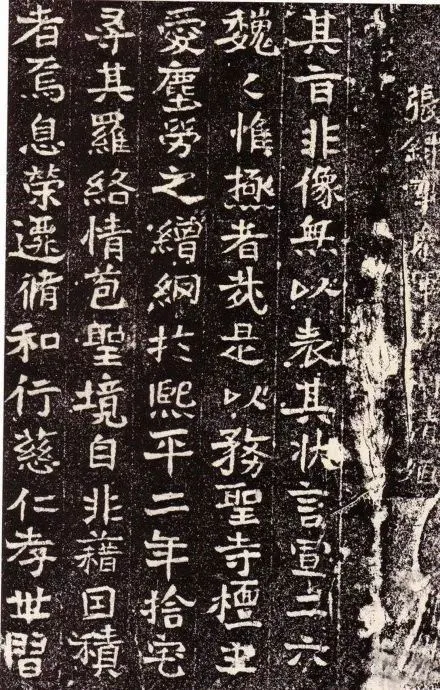 張
其旨非像無以表其状言宣三六
魏〻惟極者哉是以務聖寺檀主
愛塵勞之繒網於熙平二年拾宅
尋其羅絡情苞聖境自非藉因積
者焉息榮遷脩和行慈仁孝世習